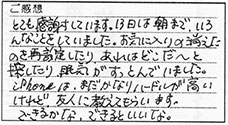 ご感想
とても感謝しています。13日は朝まで、いろ
んなことをしていました。お気に入りの消えた
のを再設定したり、あれはどこだ〜と
探したり、眠気がすっとんでいました。
iPhoneは、まだかなりハードルが高い
けれど、友人に教えてもらいます。
できるかな、できるといいな。